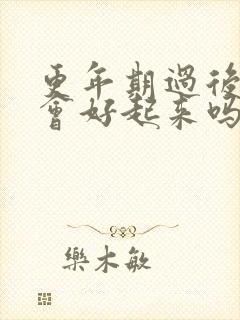 更年期過後
會好起来吗
樂木敏